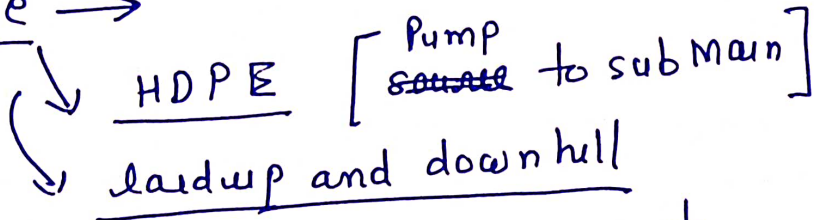 e →
HDPE [Pump to submain]
laid up and downhill